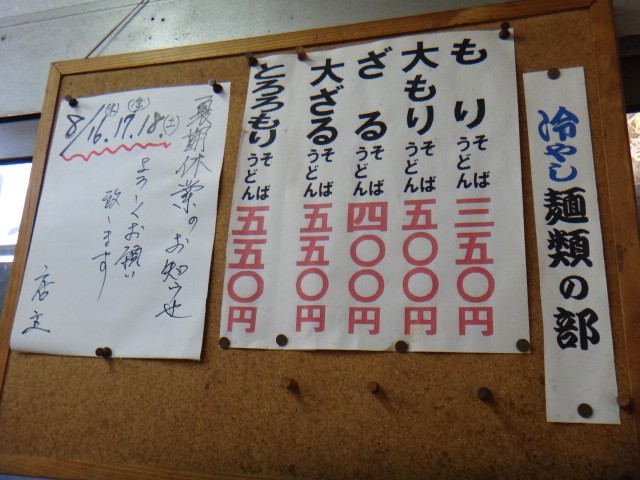 冷やし麺類の部
もり そば うどん 三五〇円
大もり そば うどん 五〇〇円
ざる そば うどん 四〇〇円
大ざる そば うどん 五五〇円
とろろもり そば うどん 五五〇円
夏期休業のお知らせ
8/16.17.18.
(木) (金) (土)
よろしくお願い
致します
店主